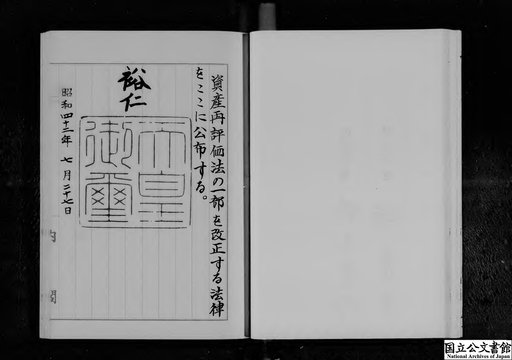 資産再評価法の一部を改正する法律
をここに公布する。
裕仁
天皇
御璽
昭和四十二年七月二十七日
内閣
国立公文書館
National Archives of Japan